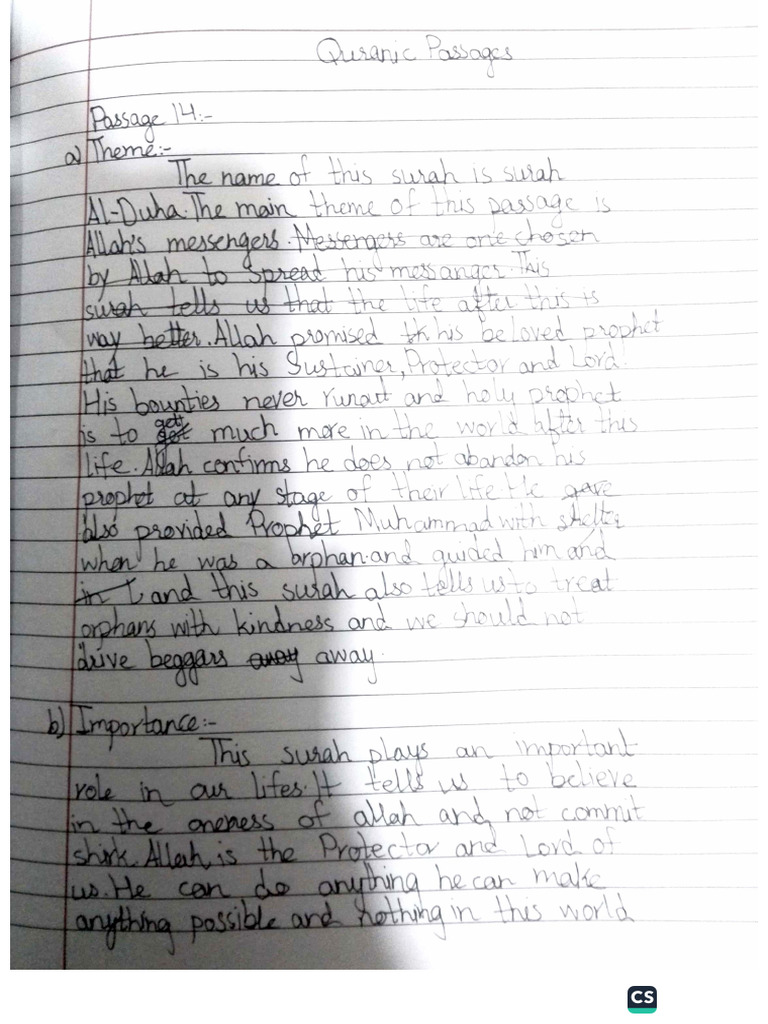 Quranic Passages
Passage 14:-
a) Theme:-
The name of this surah is surah
Al-Duha. The main theme of this passage is
Allah's messengers. Messengers are one chosen
by Allah to spread his messanger. This
surah tells us that the life after this is
way better. Allah promised his beloved prophet
that he is his Sustainer, Protector and Lord.
His bounties never runout and holy prophet
is to get much more in the world after this
life. Allah confirms he does not abandon his
prophet at any stage of their life. He gave
also provided Prophet Muhammad with shelter
when he was a orphan and guided him and
in and this surah also tells us to treat
orphans with kindness and we should not
drive beggars away away.
b) Importance:-
This surah plays an important
role in our lifes. It tells us to believe
in the oneness of allah and not commit
shirk. Allah is the Protector and Lord of
us. He can do anything he can make
anything possible and nothing in this world
CS